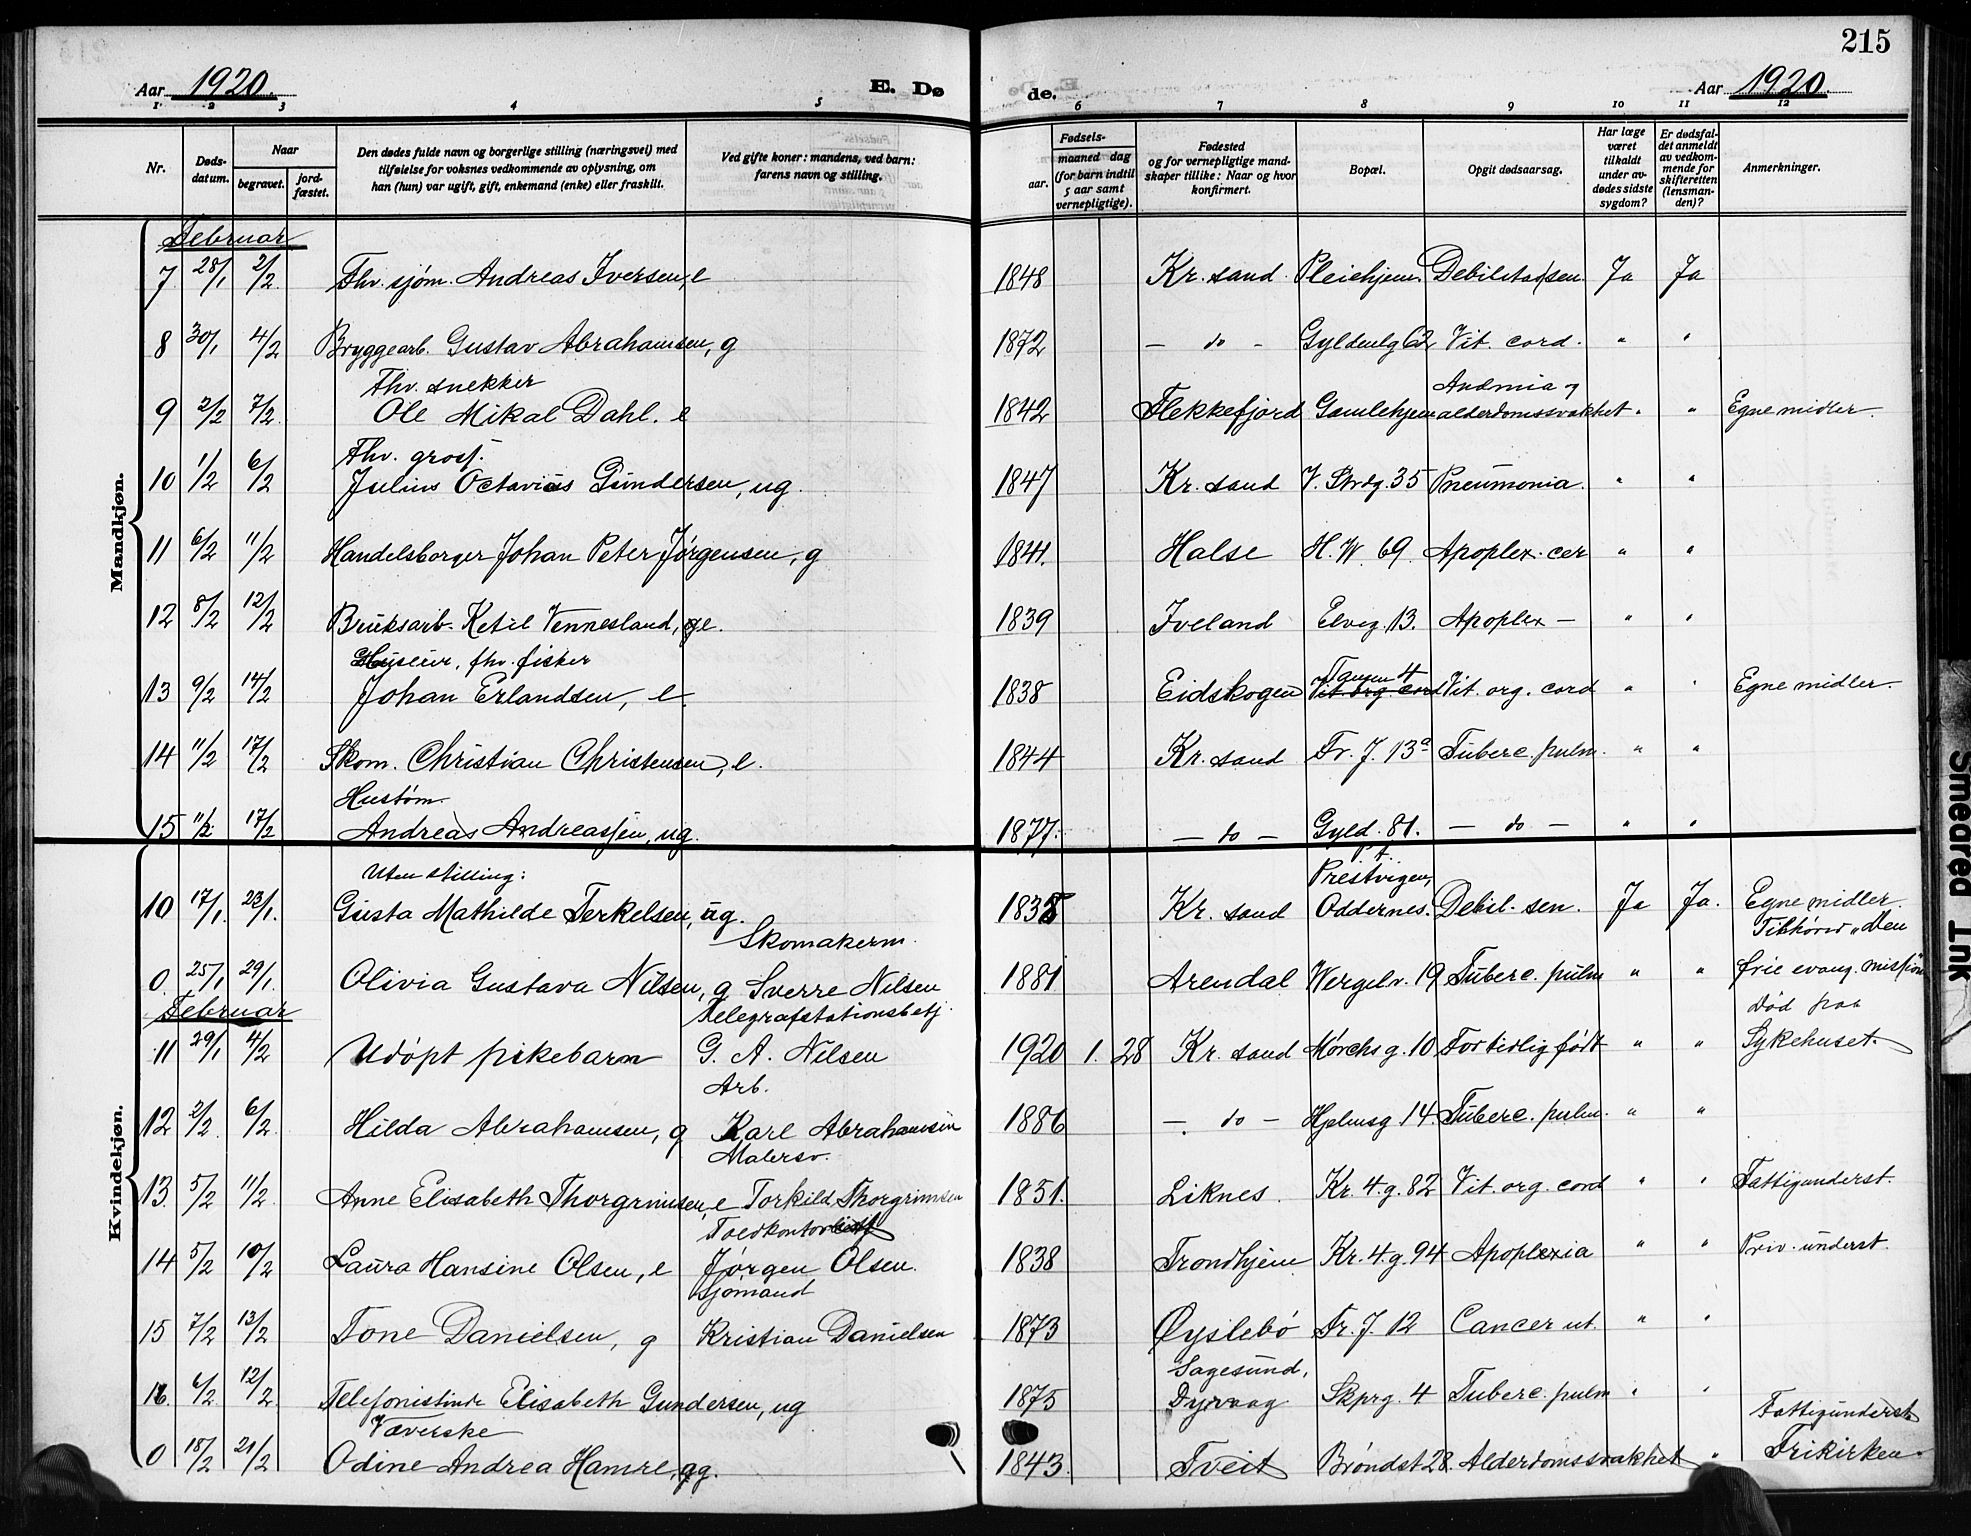 215
Aar 1920. E. Dø de. Aar 1920.
1 2 3 4 5 6 7 8 9 10 11 12
Nr. Døds-datum. Naar begravet. jord-fæstet. Den dødes fulde navn og borgerlige stilling (næringsvei) med tilføielse for voksnes vedkommende av oplysning, om han (hun) var ugift, gift, enkemand (enke) eller fraskilt. Ved gifte koner: mandens, ved barn: farens navn og stilling. Fødsels- aar. maaned dag (for barn indtil 5 aar samt vernepligtige). Fødested og for vernepligtige mand-skaper tillike: Naar og hvor konfirmert. Bopæl. Opgit dødsaarsag. Har læge været tilkaldt under av-dødes sidste sygdom? Er dødsfal-det anmeldt av vedkom-mende for skifteretten (lensman-den)? Anmerkninger.
Mandkjøn.
Februar
7 28/1 2/2 Fhv. sjøm. Andreas Iversen, e 1848 Kr. sand Pleiehjem. Debilitas sen. Ja Ja
8 30/1 4/2 Bryggearb. Gustav Abrahamsen, g 1872 - do - Gyldenlg 62 Vit. cord. " "
Fhv. snekker Anæmia og
9 2/2 7/2 Ole Mikal Dahl. e 1842 Flekkefjord Gamlehjem alderdomssvakhet " " Egne midler.
Fhv. gross.
10 1/2 6/2 Julius Octavius Gundersen, ug. 1847 Kr. sand V. Strdg. 35 Pneumonia. " "
11 6/2 11/2 Handelsborger Johan Peter Jørgensen, g 1841. Halse H. W. 69. Apoplex. cer " "
12 8/2 12/2 Bruksarb. Ketil Vennesland, e. 1839 Iveland Elveg. 13. Apoplex - " "
Huseier, fhv. fisker Tangen 4
13 9/2 14/2 Johan Erlandsen, e. 1838 Eidskogen Vit. org. cord Vit. org. cord " " Egne midler.
14 11/2 17/2 Skom. Christian Christensen, e. 1844 Kr. sand Fr. J. 13a Tuberc. pulm. " "
Hustøm.
15 11/2 17/2 Andreas Andreassen, ug. 1877. - do - Gyld. 81. - do - " "
Kvindekjøn.
Uten stilling: p. t. Prestvigen,
10 17/1. 23/1. Gusta Mathilde Terkelsen, ug. 1838 Kr. sand Oddernes. Debil. sen. Ja Ja. Egne midler.
Skomakerm. Tilhører "Den
0. 25/1 29/1. Olivia Gustava Nilsen, g Sverre Nilsen 1881 Arendal Wergelv. 19 Tuberc. pulm " " frie evang. mission"
Februar Telegrafstationsbetj. Død paa
11 29/1 4/2 Udøpt pikebarn G. A. Nilsen 1920 1. 28 Kr. sand Mørchs g. 10 For tidlig født " " Sykehuset.
Arb.
12 2/2 6/2 Hilda Abrahamsen, g Karl Abrahamsen 1886 - do - Hjelmsg 14. Tuberc. pulm. " "
Malersv.
13. 5/2 11/2. Anne Elisabeth Thorgrimsen, e Torkild Thorgrimsen 1851. Liknes. Kr. 4. g. 82 Vit. org. cord " " Fattigunderst.
14 5/2 10/2 Laura Hansine Olsen, e Jørgen Olsen. 1838 Trondhjem Kr. 4. g. 94 Apoplexia " " Priv. underst.
Sjømand
15 7/2 13/2 Tone Danielsen, g Kristian Danielsen 1873 Øyslebø Fr. J. 12 Cancer ut. " "
Sagesund,
16. 6/2 12/2 Telefonistinde Elisabeth Gundersen, ug 1875 Dypvaag Skprg. 4 Tuberc. pulm " "
Væverske Fattigunderst.
0 18/2 21/2 Odine Andrea Hamre, g. 1843. Tveit Brøndst 28. Alderdomssvakhet " Frikirken.
Smeared Ink